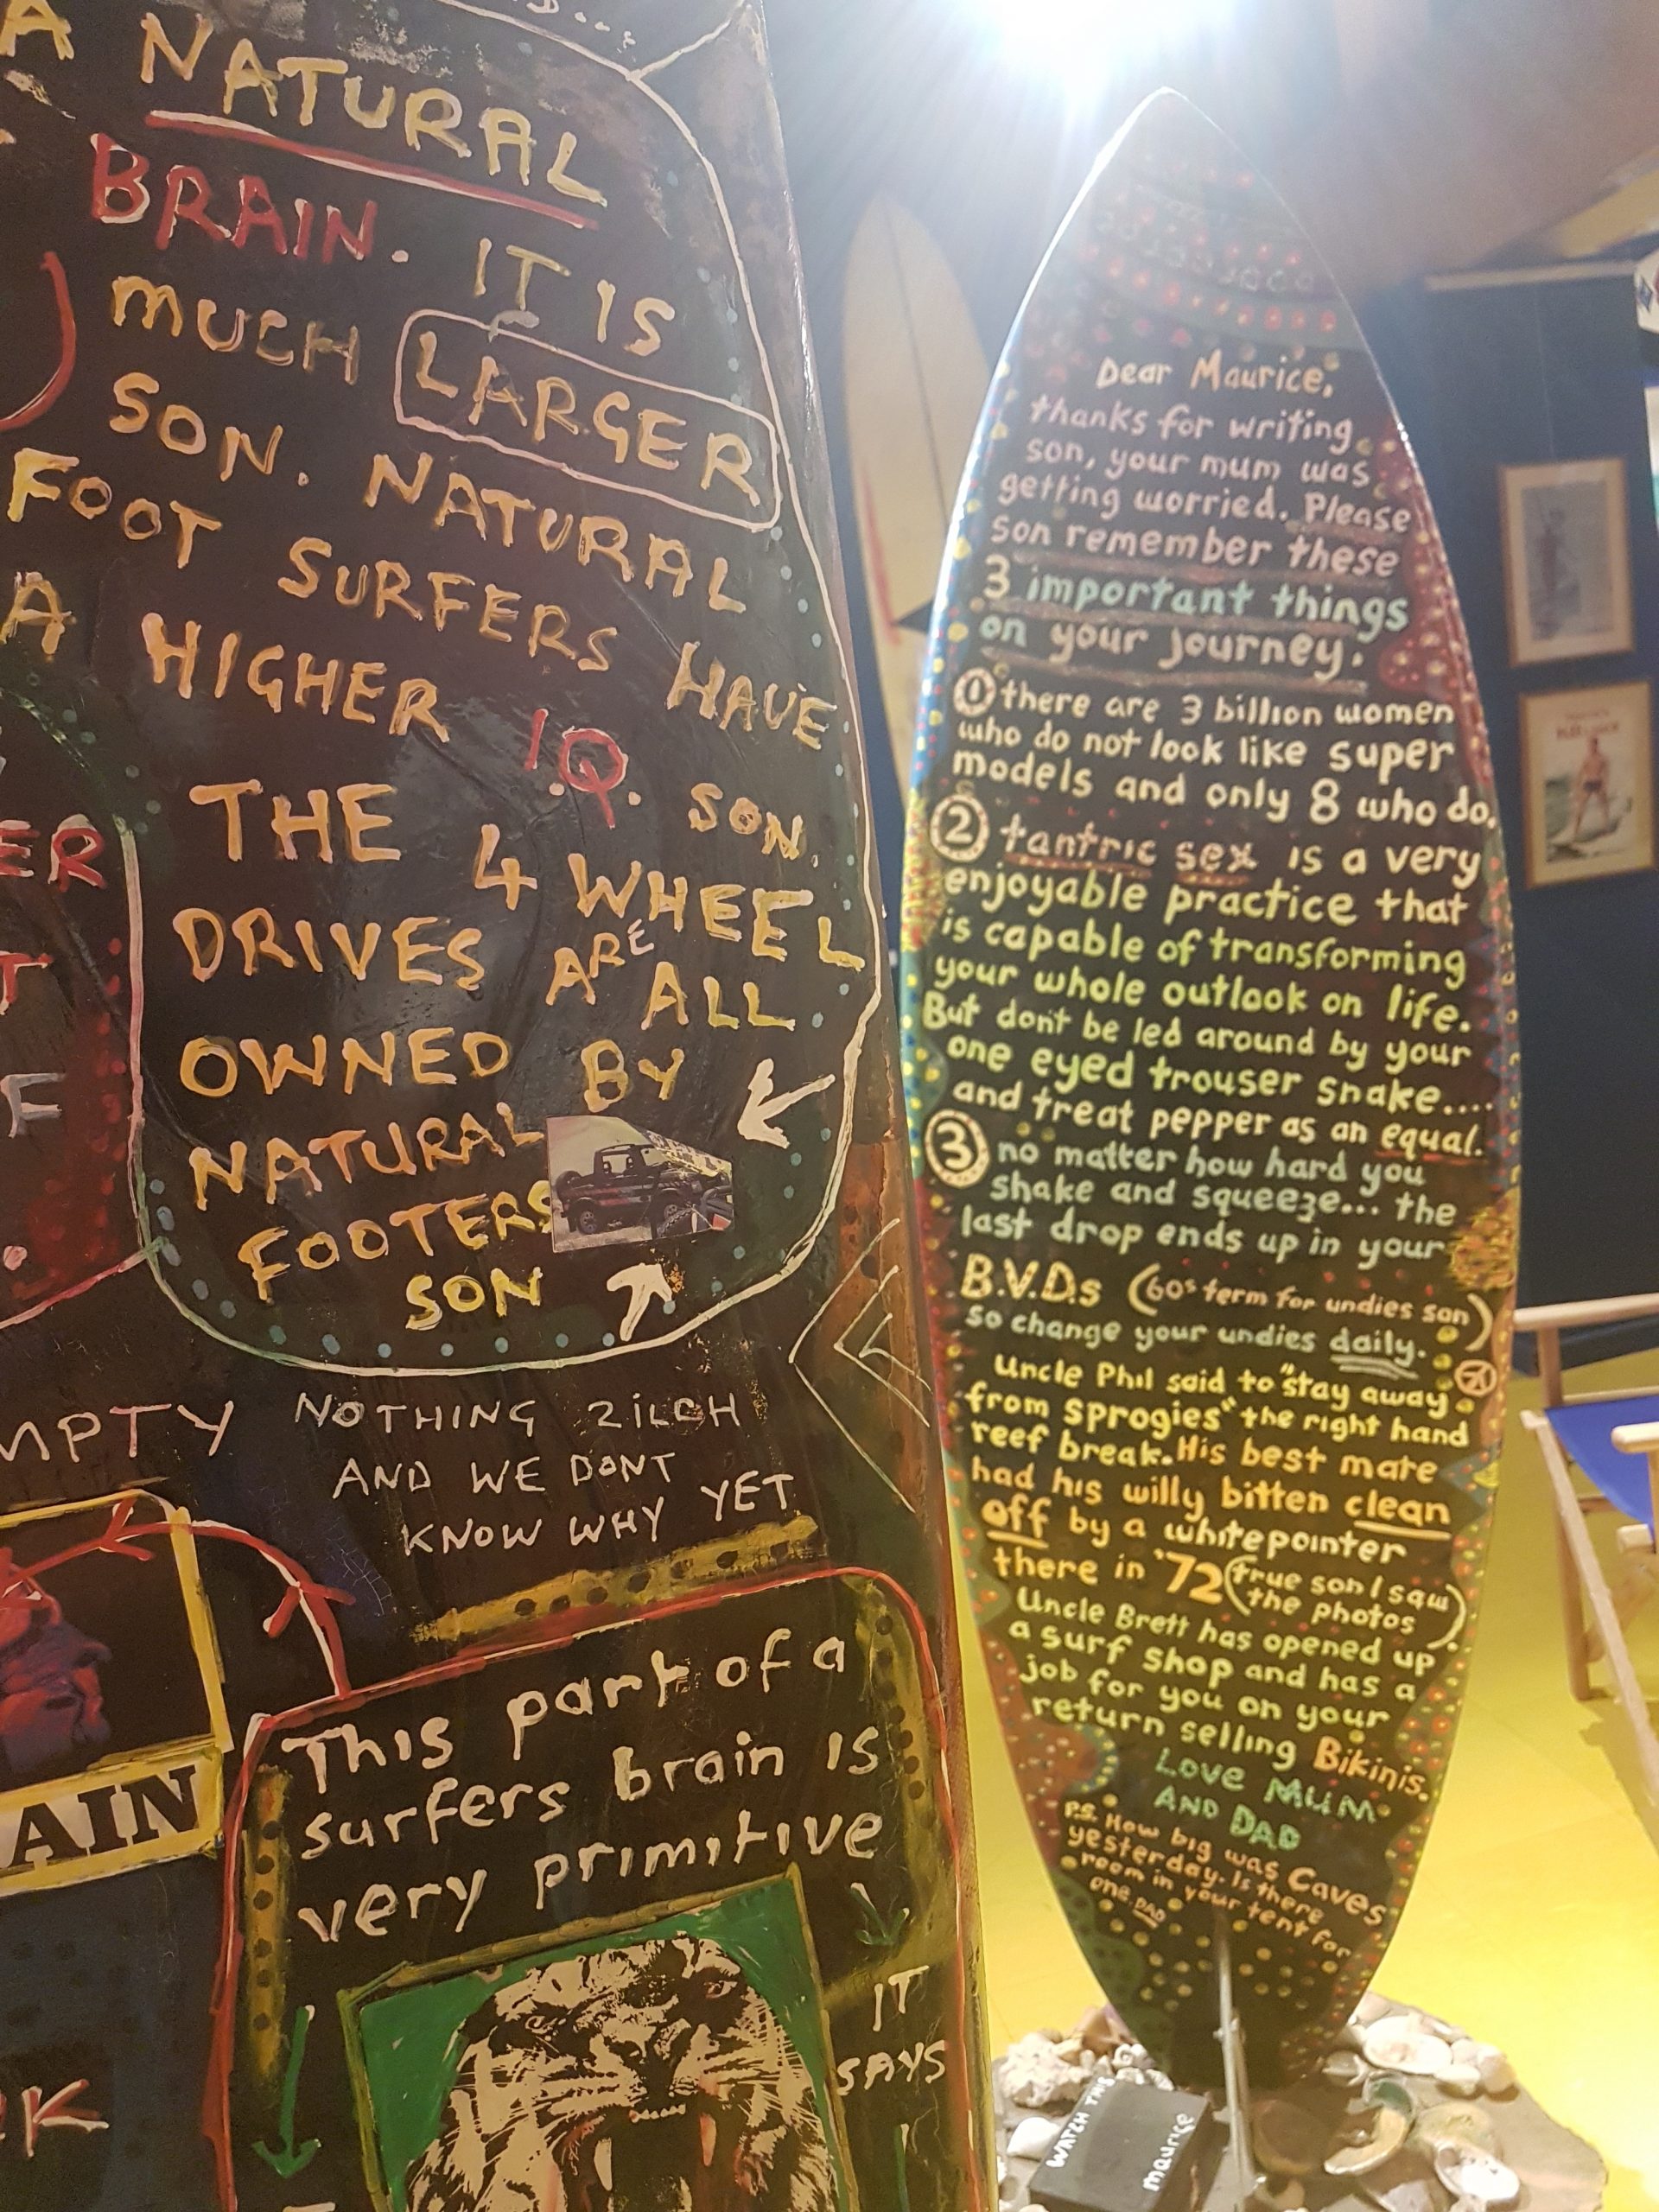 A NATURAL
BRAIN. IT IS
MUCH LARGER
SON. NATURAL
FOOT SURFERS HAVE
A HIGHER I.Q. SON.
THE 4 WHEEL
DRIVES ARE ALL
OWNED BY
NATURAL
FOOTERS
SON
ER
T
F
MPTY NOTHING ZILCH
AND WE DONT
KNOW WHY YET
AIN
This part of a
surfers brain is
very primitive
IT
SAYS
RK
Dear Maurice,
thanks for writing
son, your mum was
getting worried. Please
son remember these
3 important things
on your journey.
① there are 3 billion women
who do not look like super
models and only 8 who do.
② tantric sex is a very
enjoyable practice that
is capable of transforming
your whole outlook on life.
But don't be led around by your
one eyed trouser snake....
and treat pepper as an equal.
③ no matter how hard you
shake and squeeze... the
last drop ends up in your
B.V.D.s (60s term for undies son)
so change your undies daily.
Uncle Phil said to "stay away
from Sprogies" the right hand
reef break. His best mate
had his willy bitten clean
off by a whitepointer
there in '72 (true son I saw
the photos)
Uncle Brett has opened up
a surf shop and has a
job for you on your
return selling Bikinis.
Love MUM
AND DAD
P.S. How big was Caves
yesterday. Is there
room in your tent for
one. DAD
WATCH THIS
maurice